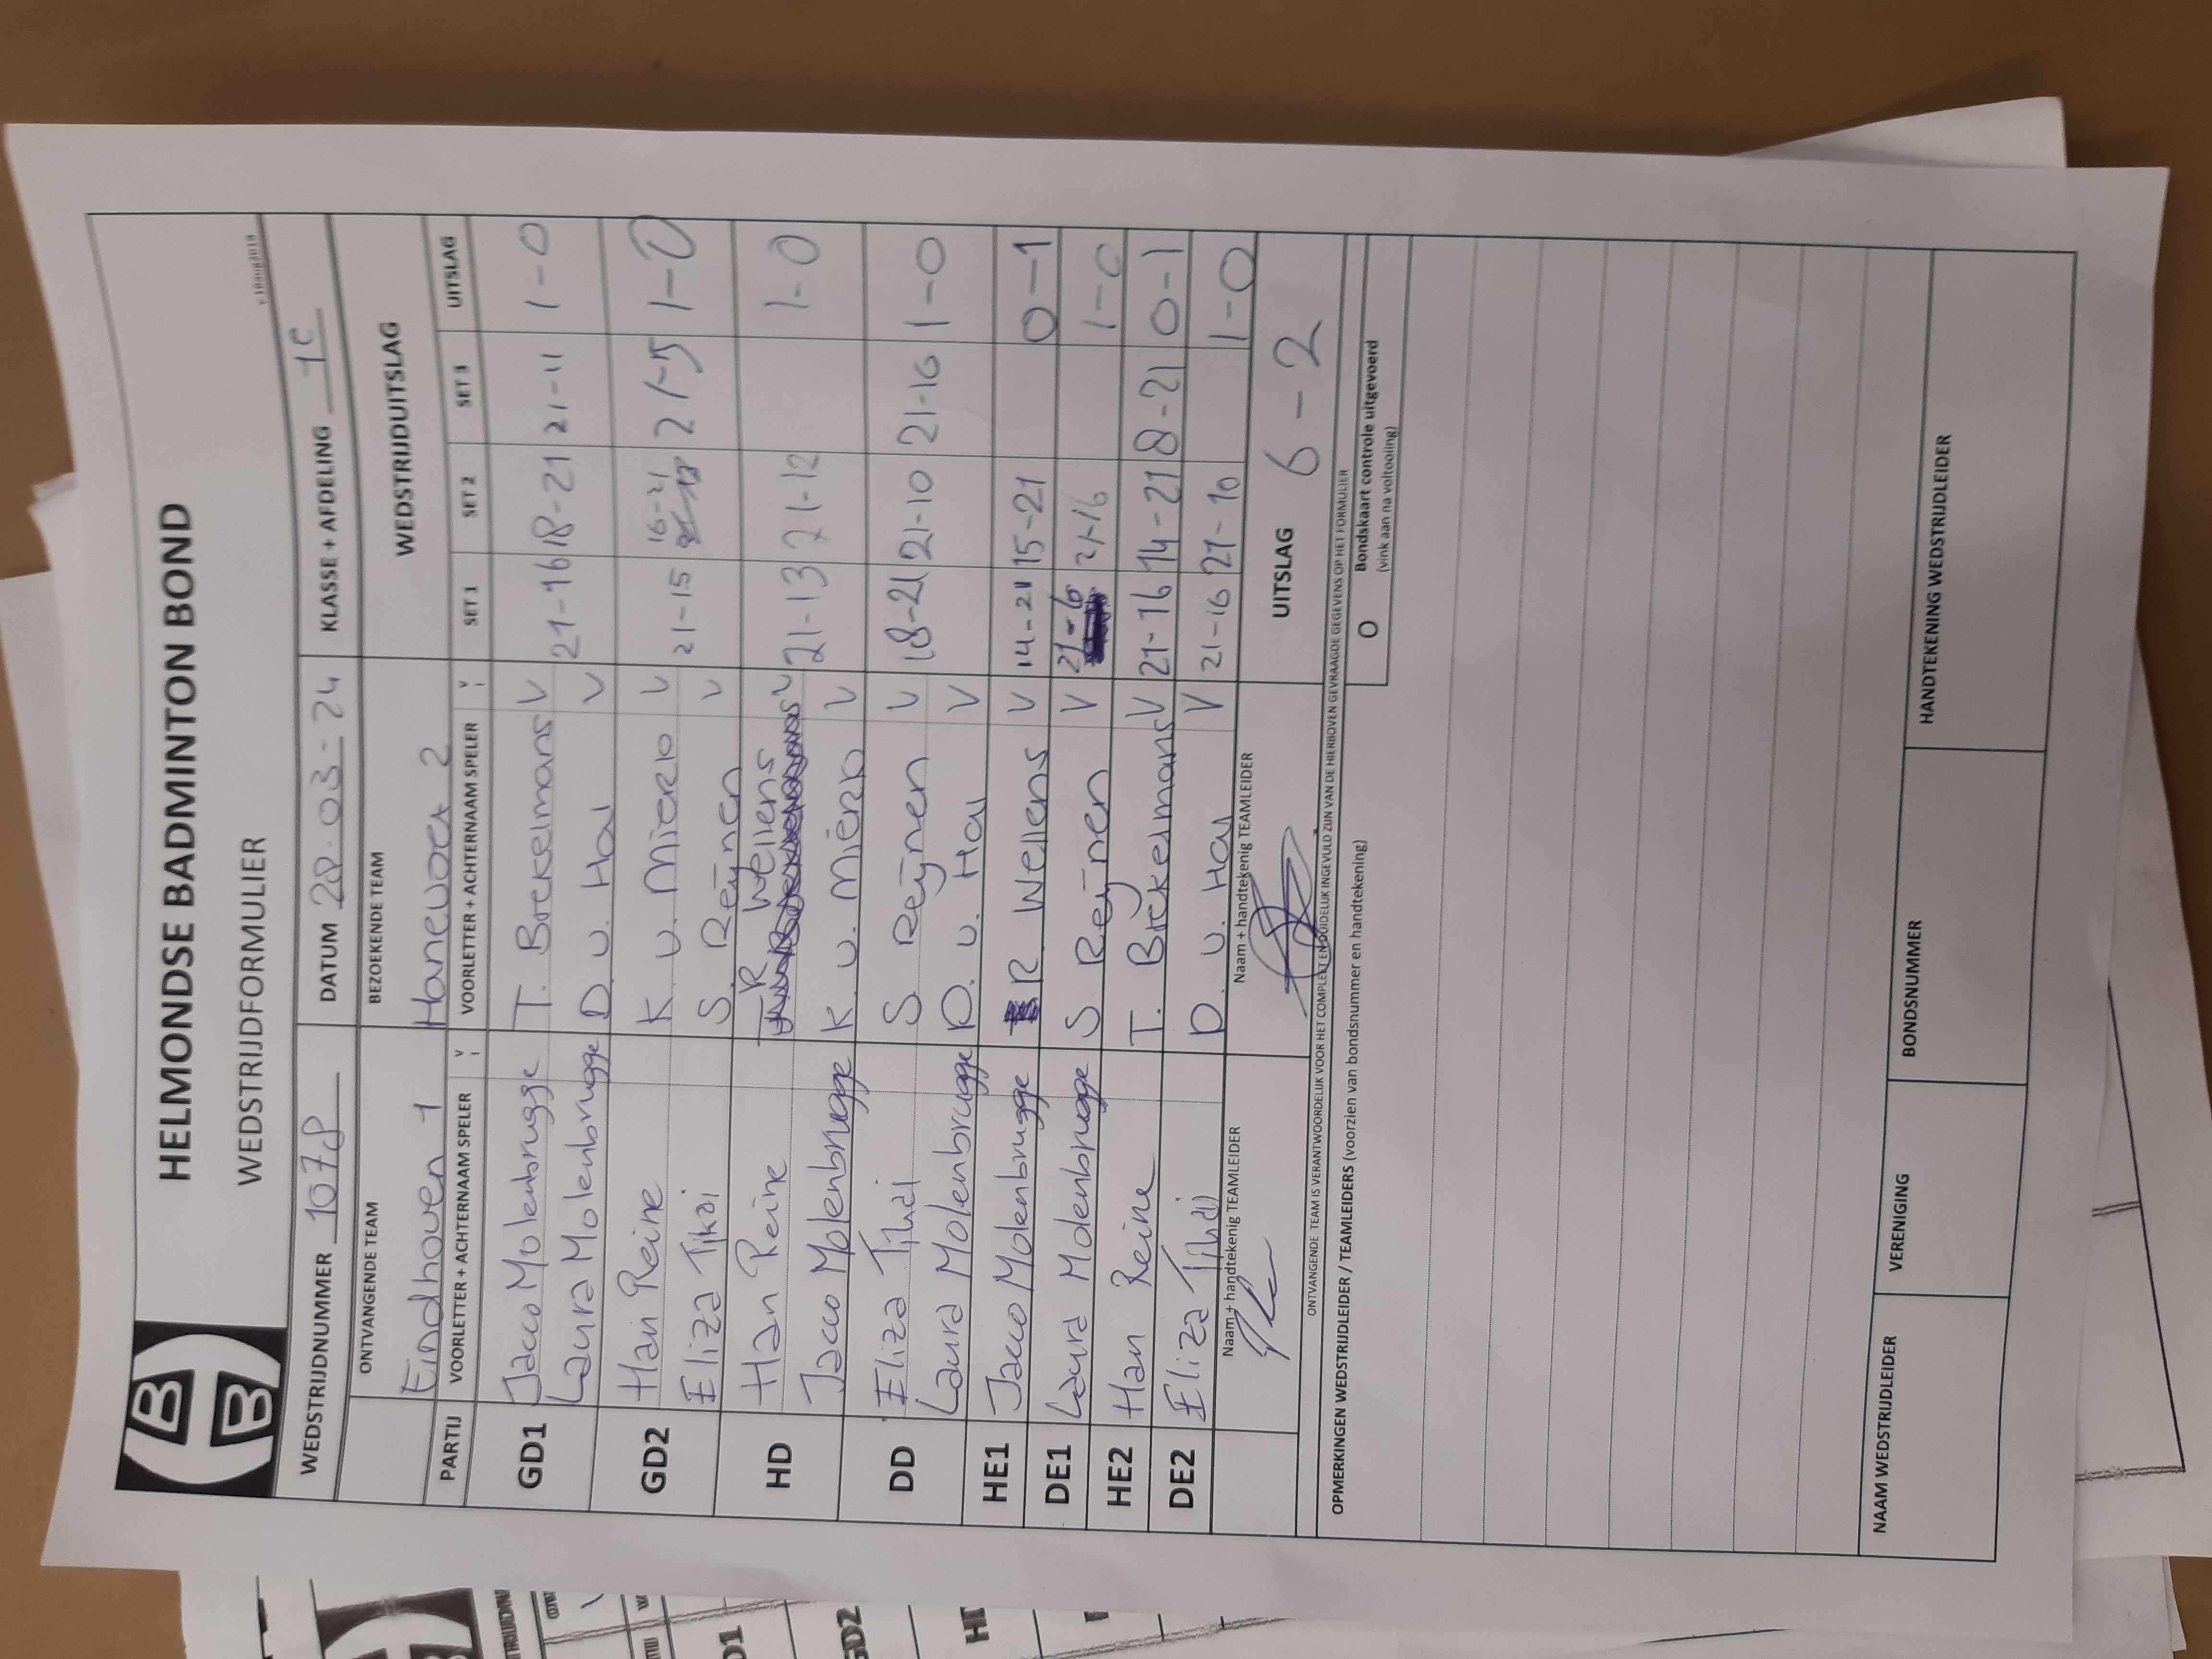 HELMONDSE BADMINTON BOND
WEDSTRIJDFORMULIER
v.18aug2019
WEDSTRIJDNUMMER 1078 DATUM 28-03-24 KLASSE + AFDELING 1C
ONTVANGENDE TEAM BEZOEKENDE TEAM WEDSTRIJDUITSLAG
Eindhoven 1 Hanevoet 2
PARTIJ VOORLETTER + ACHTERNAAM SPELER V VOORLETTER + ACHTERNAAM SPELER V SET 1 SET 2 SET 3 UITSLAG
GD1 Jacco Molenbrugge T. Brekelmans V 21-16 18-21 21-11 1-0
Laura Molenbrugge D v. Hal V
GD2 Han Reine K v. Mierlo V 21-15 16-21 21-5 1-0
Eliza Tjikai S. Reijnen V
HD Han Reine R Wellens V 21-13 21-12 1-0
Jacco Molenbrugge K v. Mierlo V
DD Eliza Tihai S Reijnen V 18-21 21-10 21-16 1-0
Laura Molenbrugge D v. Hal V
HE1 Jacco Molenbrugge R. Wellens V 14-21 15-21 0-1
DE1 Laura Molenbrugge S Reijnen V 21-6 21-16 1-0
HE2 Han Reine T. Brekelmans V 21-16 14-21 8-21 0-1
DE2 Eliza Tihai D. v. Hal V 21-16 21-10 1-0
Naam + handtekenig TEAMLEIDER Naam + handtekenig TEAMLEIDER UITSLAG 6-2
ONTVANGENDE TEAM IS VERANTWOORDELIJK VOOR HET COMPLEET EN DUIDELIJK INGEVULD ZIJN VAN DE HIERBOVEN GEVRAAGDE GEGEVENS OP HET FORMULIER
OPMERKINGEN WEDSTRIJDLEIDER / TEAMLEIDERS (voorzien van bondsnummer en handtekening) O Bondskaart controle uitgevoerd
(vink aan na voltooiing)
NAAM WEDSTRIJDLEIDER VERENIGING BONDSNUMMER HANDTEKENING WEDSTRIJDLEIDER
GD2